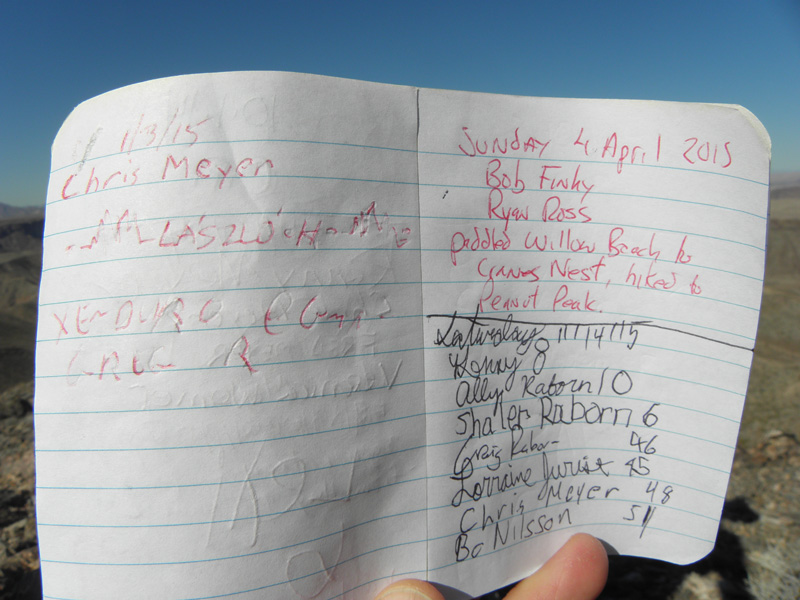 1/3/15
Chris Meyer
LÁSZLÓ
SUNDAY 4 April 2015
Bob Finky
Ryan Ross
paddled Willow Beach to
Nest, hiked to
Peanut Peak.
Saturday 11/14/15
Henny 8
Ally Raborn 10
Shaler Raborn 6
Craig Raborn 46
Lorraine Jurist 45
Chris Meyer 48
Bo Nilsson 51